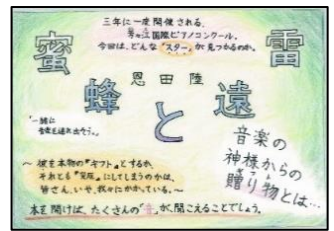 三年に一度開催される、
芳ヶ江国際ピアノコンクール。
今回は、どんな"スター"が見つかるのか。
蜜蜂と遠雷
恩田陸
"一緒に
音楽を連れ出そう。"
音楽の
神様からの
贈り物とは…
～彼を本物の"ギフト"とするか、
それとも"災厄"にしてしまうのかは、
皆さん、いや、我々にかかっている。～
本を開けば、たくさんの"音"が聞こえることでしょう。